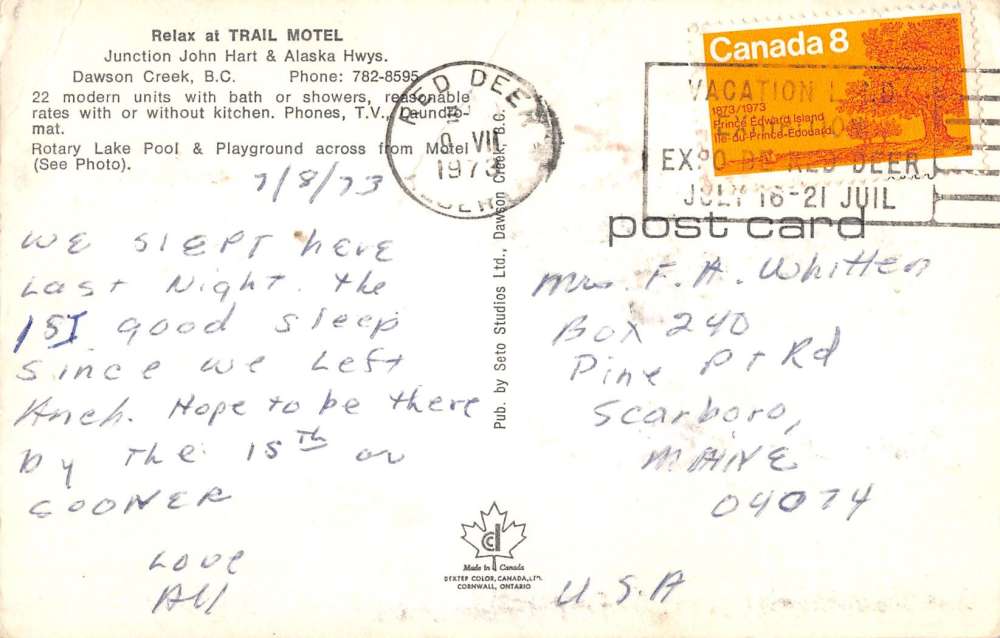 Relax at TRAIL MOTEL
Junction John Hart & Alaska Hwys.
Dawson Creek, B.C. Phone: 782-8595
22 modern units with bath or showers, reasonable
rates with or without kitchen. Phones, T.V., Laundro-
mat.
Rotary Lake Pool & Playground across from Motel
(See Photo).
7/8/73
WE SlEPT here
Last Night. the
1ST good sleep
since we Left
Anch. Hope to be there
by The 15Th or
SOONER
Love
All
Pub. by Seto Studios Ltd., Dawson Creek, B.C.
RED DEER
VII
1973
Canada 8
1873/1973
Prince Edward Island
Île-du-Prince-Édouard
VACATION
EXPO DE RED DEER
JULY 16-21 JUIL
post card
Mrs. F. A. Whitten
Box 240
Pine Pt Rd
Scarboro,
MAINE
04074
U.S.A
Made in Canada
DEXTER COLOR, CANADA, LTD.
CORNWALL, ONTARIO